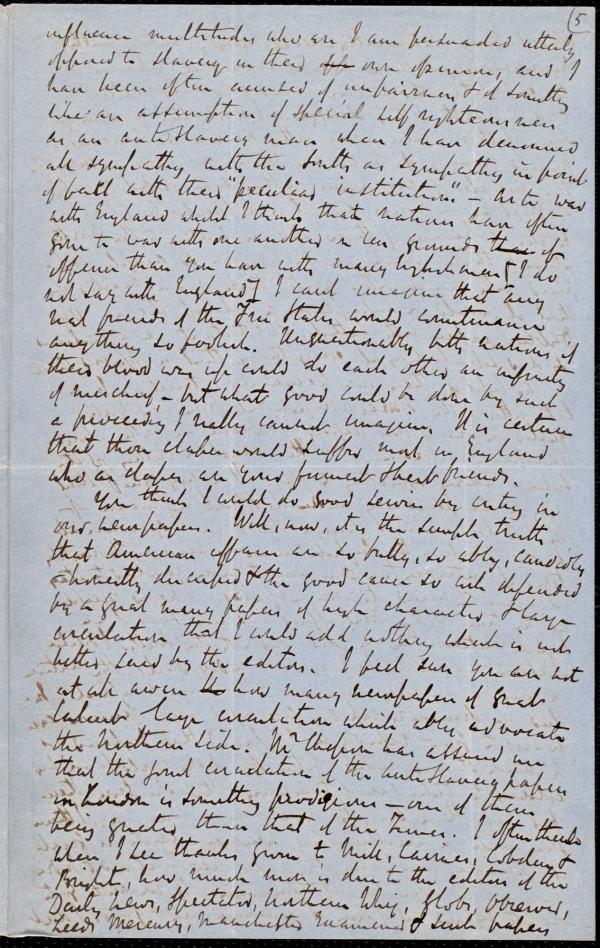 (5
influence multitudes who are I am persuaded utterly
opposed to slavery in their own opinions, and I
have been often accused of unfairness & of something
like an assumption of special self righteousness
as an anti slavery man when I have denounced
all sympathy with the South as sympathy in point
of fact with their "peculiar institution" - As to war
with England whilst I think that nations have often
gone to war with one another on less grounds than of
offence than you have with many Englishmen [I do
not say with England] I can't imagine that any
real friends of the Free States would countenance
anything so foolish. Unquestionably both nations if
their blood was up could do each other an infinity
of mischief - but what good could be done by such
a proceeding I really cannot imagine. It is certain
that those classes would suffer most in England
who as classes are your firmest & best friends.
You think I could do good service by writing in
our newspapers. Well, now, it is the simple truth
that American affairs are so fully, so ably, candidly
& honestly discussed & the good cause so well defended
by a great many papers of high character & large
circulation that I could add nothing which is not
better said by the editors. I feel sure you are not
at all aware how many newspapers of great
talent & large circulation which ably advocate
the Northern side. Mr Chesson has assured me
that the joint circulation of the anti slavery papers
in London is something prodigious - one of them
being greater than that of the Times. I often think
when I see thanks given to Mill, Cairnes, Cobden &
Bright, how much more is due to the editors of the
Daily News, Spectator, Northern Whig, Globe, Observer,
Leeds Mercury, Manchester Examiner & such papers